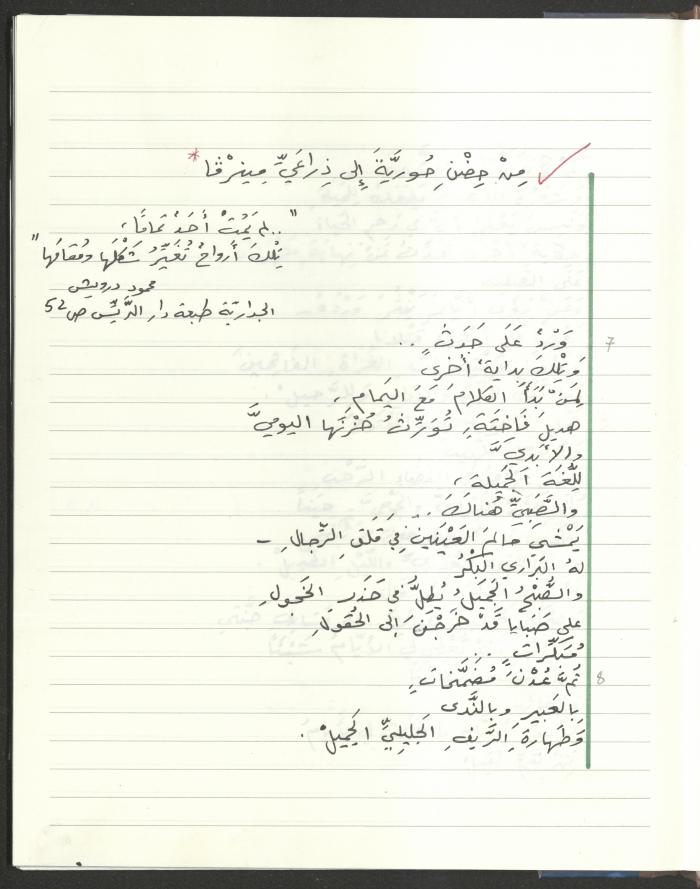 مِنْ حِضْنِ حُورِيَّةَ إِلى ذِراعَيِّ مِينِرْڤا *
"..لم يَمُتْ أَحَدٌ تَمامًا،
تِلْكَ أَرواحٌ تُغَيِّرُ شَكْلَها ومُقامَها"
محمود درويش
الجداريّة طبعة دار الرَّيِّس ص 52
وَرْدٌ عَلَى جَدَثٍ ..
وَتِلْكَ بِدايةٌ أُخرى
لِمَنْ بَدَأَ الكَلامَ مَعَ اليَمامِ،
هديلِ فَاخِتَةٍ تُوَرِّثُ حُزْنَها اليوميَّ
والأَبَدِيَّ
لِلُّغَةِ الجَمِيلةِ،
والصَّبِيُّ هُناكَ ..
يَمْشي حالِمَ العَيْنَيْنِ في قَلَقِ الرِّجالِ -
لهُ البَرَاري البِكْرُ
والصُّبْحُ الجَمِيلُ يُطِلُّ في خَدَرِ الخَجُولِ
على صَبايا قَدْ خَرَجْنَ إِلى الحُقُولِ
مُبَكِّراتٍ ..
ثُمَّ عُدْنَ مُضَمَّخاتٍ
بِالعَبيرِ وبالنَّدى
وَطَهارةِ الرِّيفِ الجَليلِيِّ الجَميلْ .
7
8